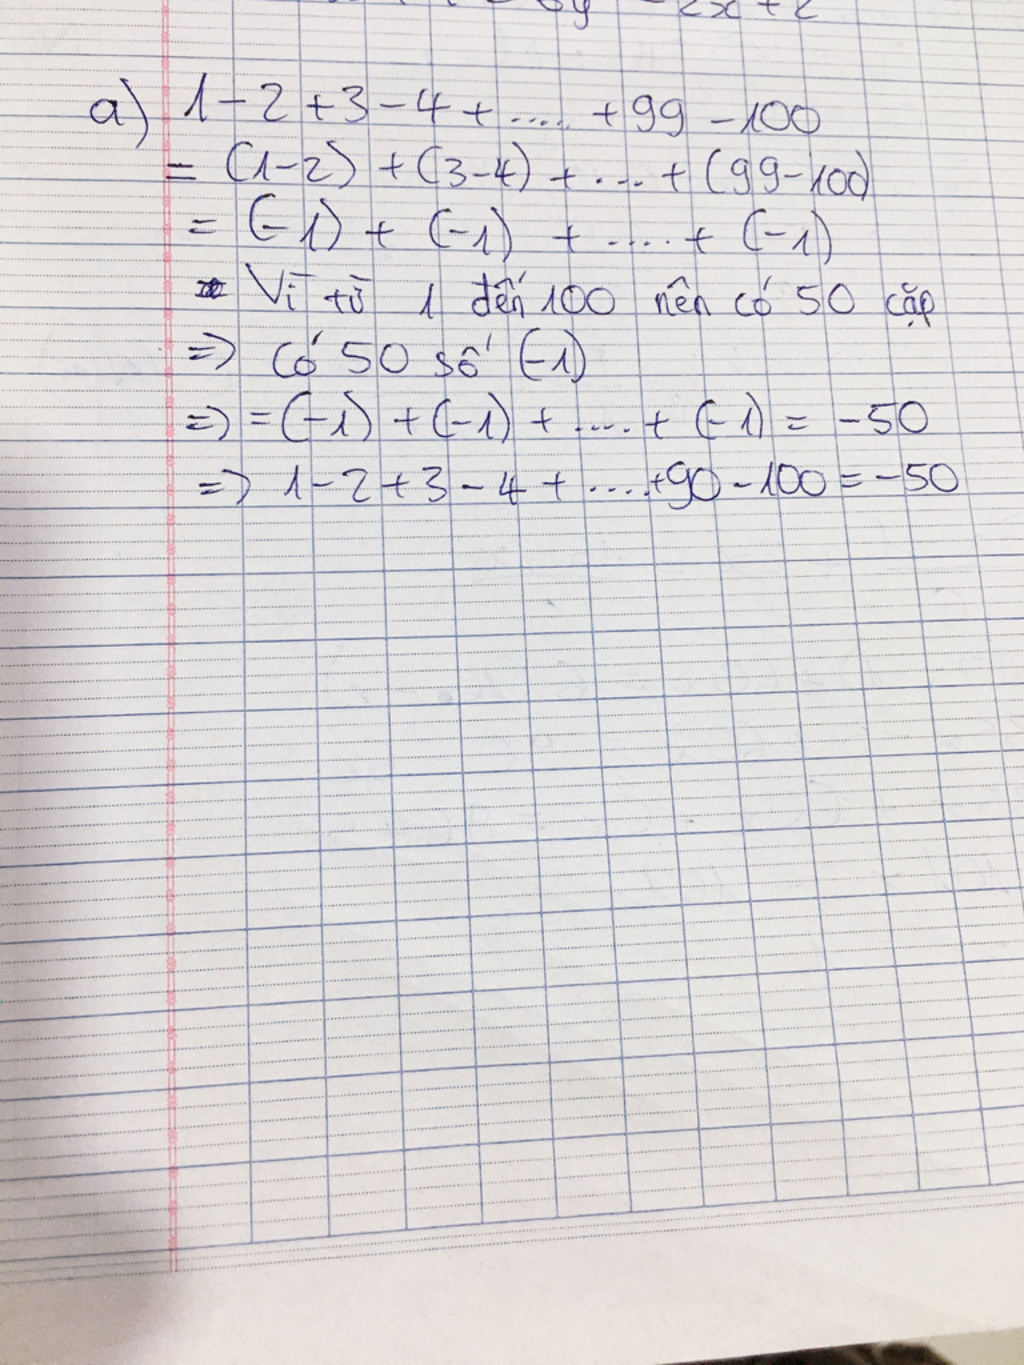 - 2x + 2
a) 1 - 2 + 3 - 4 + ..... + 99 - 100
= (1-2) + (3-4) + .... + (99-100)
= (-1) + (-1) + ..... + (-1)
Vì từ 1 đến 100 nên có 50 cặp
=> có 50 số (-1)
=> = (-1) + (-1) + ..... + (-1) = -50
=> 1 - 2 + 3 - 4 + .....+90 - 100 = -50